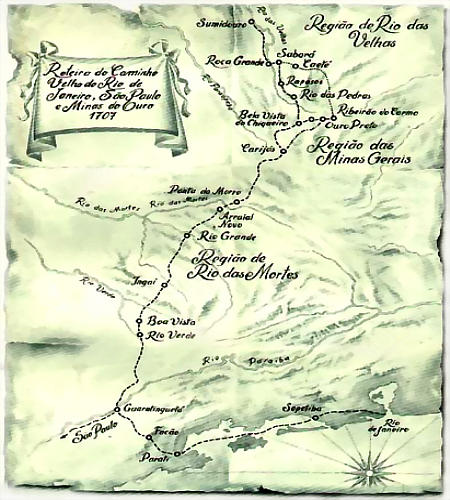 Roteiro do Caminho
Velho do Rio de
Janeiro, São Paulo
e Minas do Ouro
1707
Sumidouro
Rio das Velhas
Região do Rio das
Velhas
Roça Grande
Sabará
Caeté
Raposos
Rio das Pedras
Bela Vista
do Chiqueiro
Ribeirão do Carmo
Ouro Preto
Região das
Minas Gerais
Carijós
Ponta do Morro
Rio das Mortes
Rio das Mortes
Arraial
Novo
Rio Grande
Região de
Rio das Mortes
Ingaí
Rio Verde
Boa Vista
Rio Verde
Rio Paraíba
Guaratinguetá
São Paulo
Facão
Parati
Sepetiba
Rio
de Janeiro